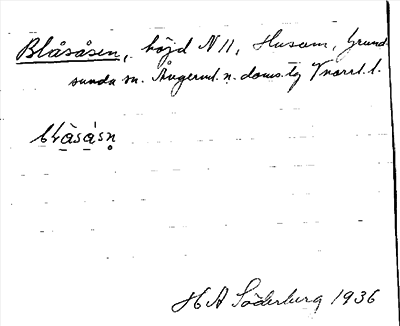 Blåsåsen, höjd N 11, Husum, Grund-
sunda sn. Ångerml. n. doms. tg Vnorrl. l.
blåsåsn̥
H A Söderberg 1936